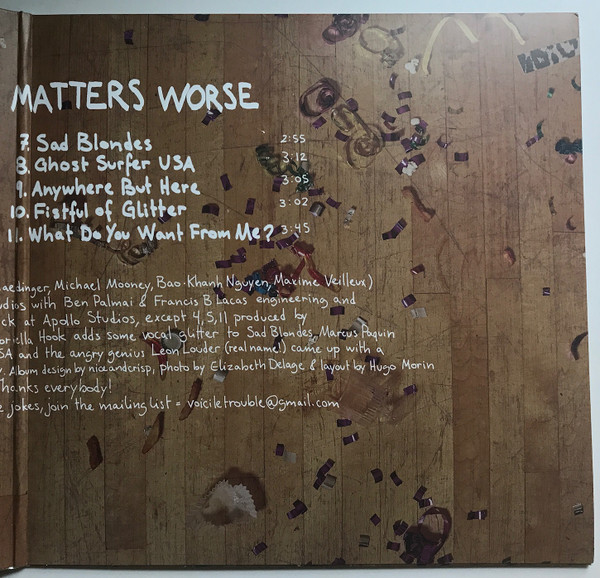 MATTERS WORSE
7. Sad Blondes 2:55
8. Ghost Surfer USA 3:12
9. Anywhere But Here 3:05
10. Fistful of Glitter 3:02
11. What Do You Want From Me? 3:45
aedinger, Michael Mooney, Bao-Khanh Nguyen, Maxime Veilleux)
udios with Ben Palmai & Francis Blacas engineering and
ck at Apollo Studios, except 4,5,11 produced by
oriella Hook adds some vocal glitter to Sad Blondes, Marcus Paquin
SA and the angry genius Leon Louder (real name!) came up with a
. Album design by niceandcrisp, photo by Elizabeth Delage & layout by Hugo Morin
Thanks everybody!
e jokes, join the mailing list = voiciletrouble@gmail.com